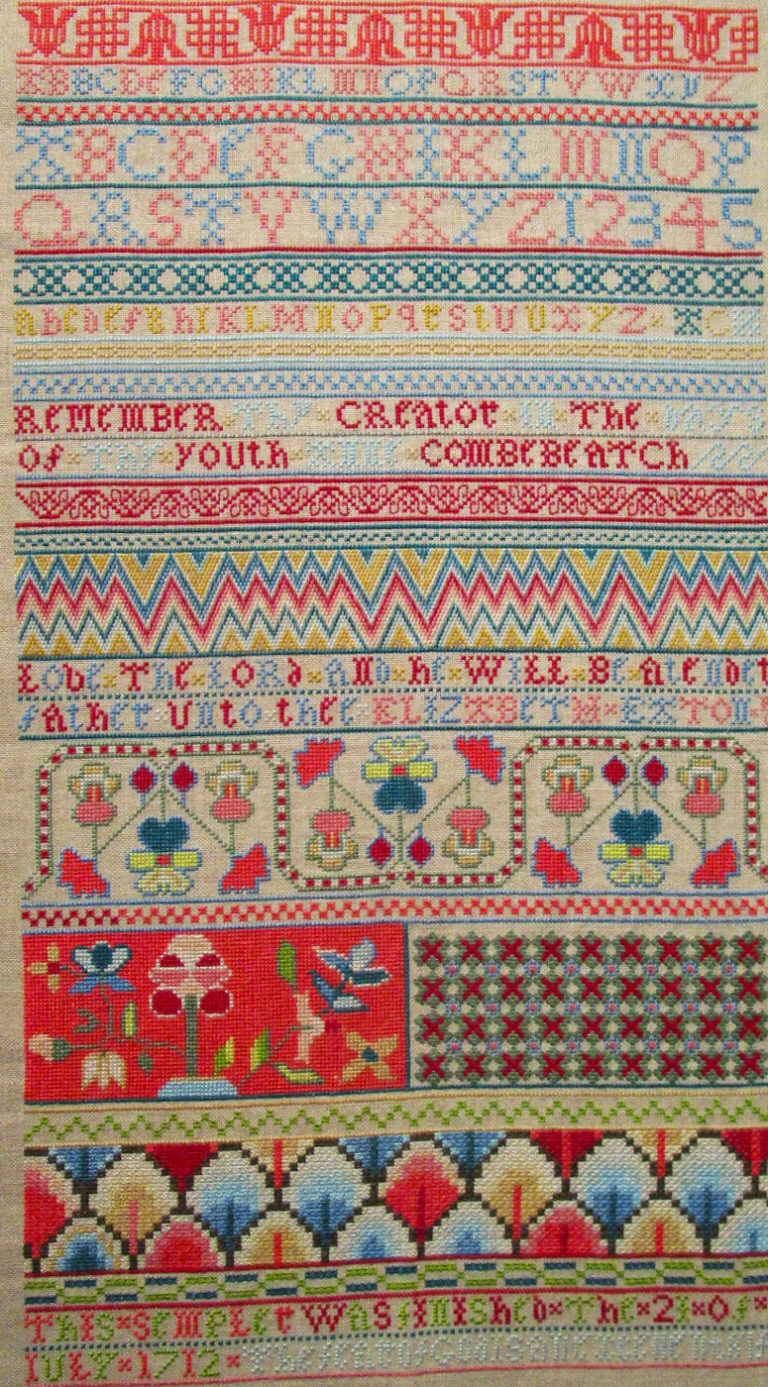 ABBCDEFGHIKLMNOPQRSTVWXYZ
ABCDEFGHIKLMNOP
QRSTVWXYZ12345
abcdefghIKLMNOPqrStUUXYZ
REMEMBER THY CREatOr IN The DAYS
Of THY YOUth TIME COMBEBEATCh
LOVE ThE LORd AND he WILL BE A tENDEr
fAther UNtO thEE ELIZABETH EXTON
THIS SEMPLEr WAS fINIShED The 21 Of
IULY 1712 The